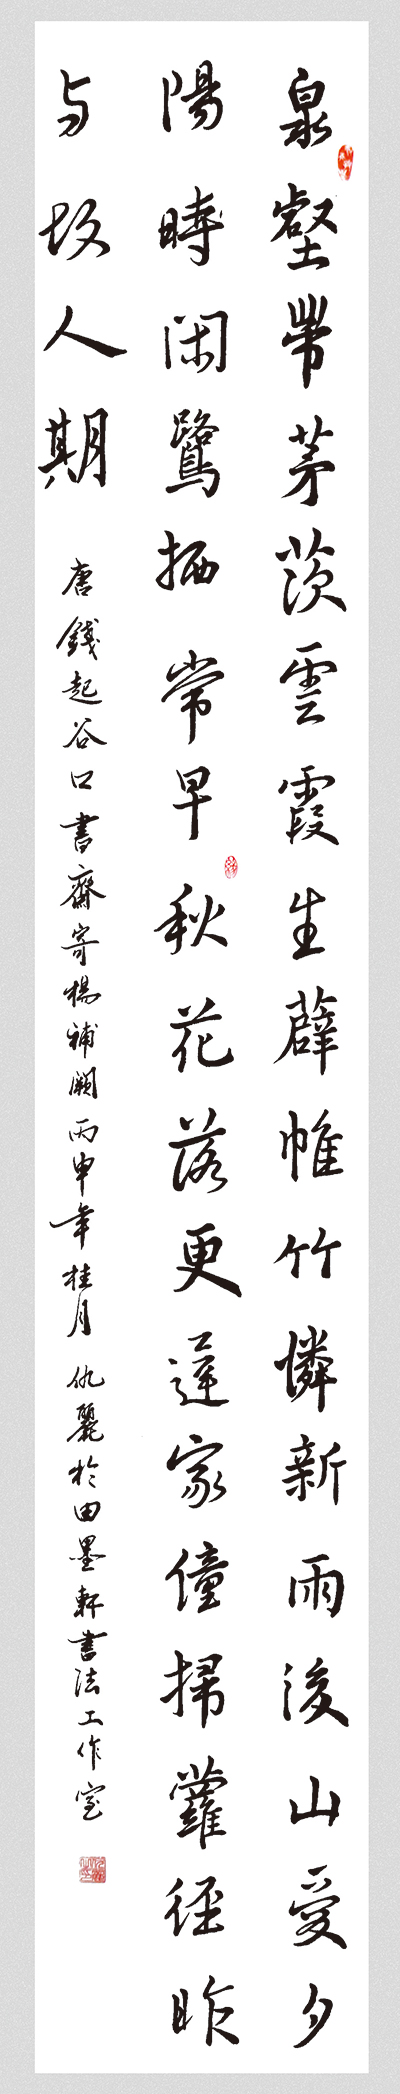 泉壑帶茅茨雲霞生薜帷竹憐新雨後山愛夕
陽時閑鷺栖常早秋花落更遲家僮掃蘿徑昨
与故人期
唐錢起谷口書齋寄楊補闕丙申年桂月仇麗於田墨軒書法工作室